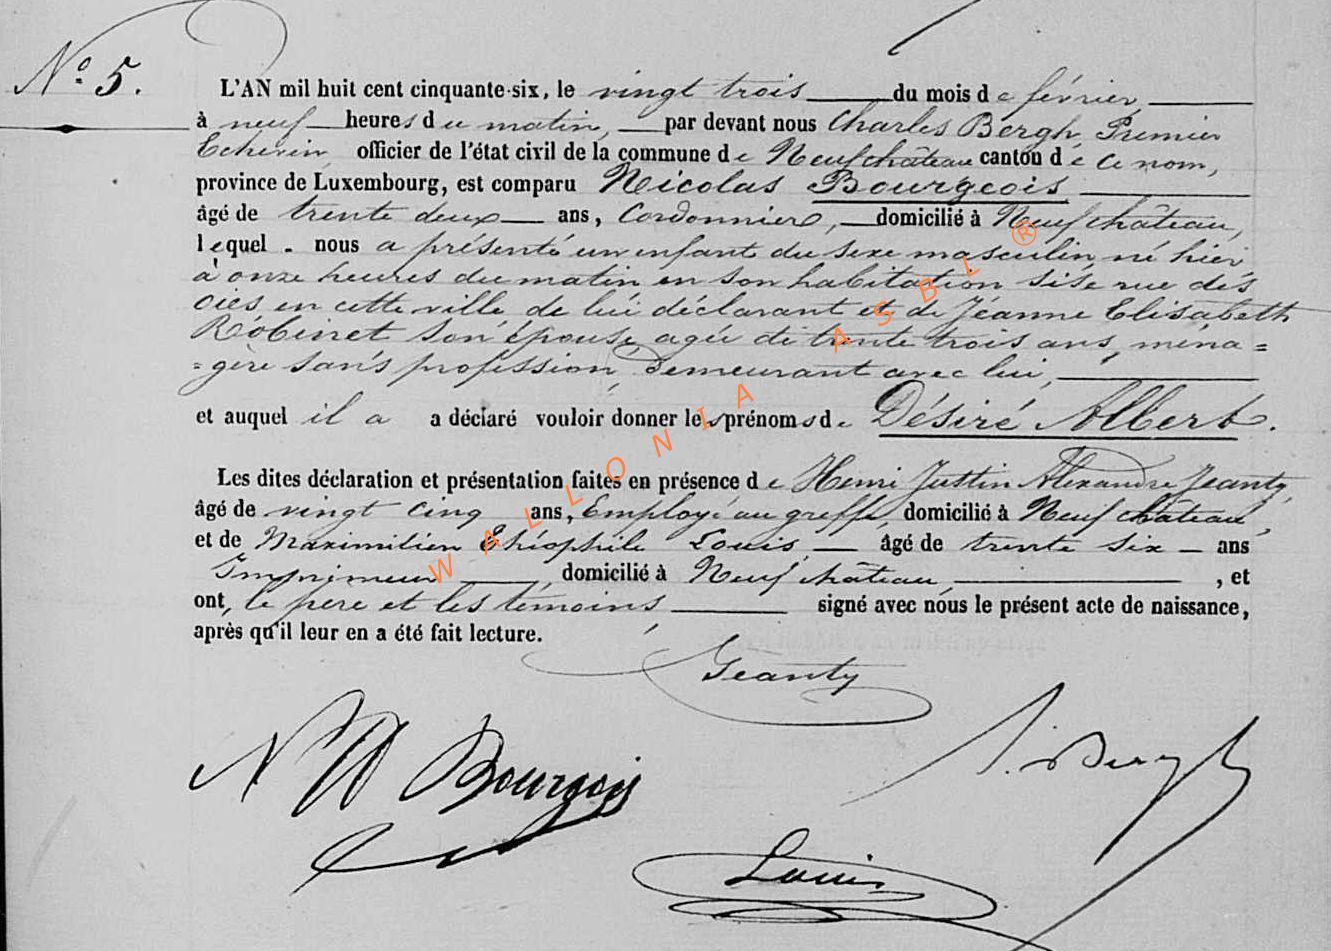 N° 5.
L'AN mil huit cent cinquante-six, le vingt trois du mois de février,
à neuf heures du matin, par devant nous Charles Bergh, Premier
Echevin, officier de l'état civil de la commune de Neufchâteau canton de ce nom,
province de Luxembourg, est comparu Nicolas Bourgeois
âgé de trente deux ans, Cordonnier, domicilié à Neufchâteau,
lequel nous a présenté un enfant du sexe masculin né hier
à onze heures du matin en son habitation sise rue des
oies en cette ville de lui déclarant et de Jeanne Elisabeth
Robinet son épouse, agée de trente trois ans, ména=
=gère sans profession, demeurant avec lui,
et auquel il a a déclaré vouloir donner les prénoms de Désiré Albert.
Les dites déclaration et présentation faites en présence de Henri Justin Alexandre Jeanty,
âgé de vingt cinq ans, Employé au greffe, domicilié à Neufchâteau,
et de Maximilien Théophile Louis, âgé de trente six ans
Imprimeur, domicilié à Neufchâteau, , et
ont, le père et les témoins, signé avec nous le présent acte de naissance,
après qu'il leur en a été fait lecture.
Geanty
N Bourgois
Bergh
Louis
WALLONIA ASBL ®